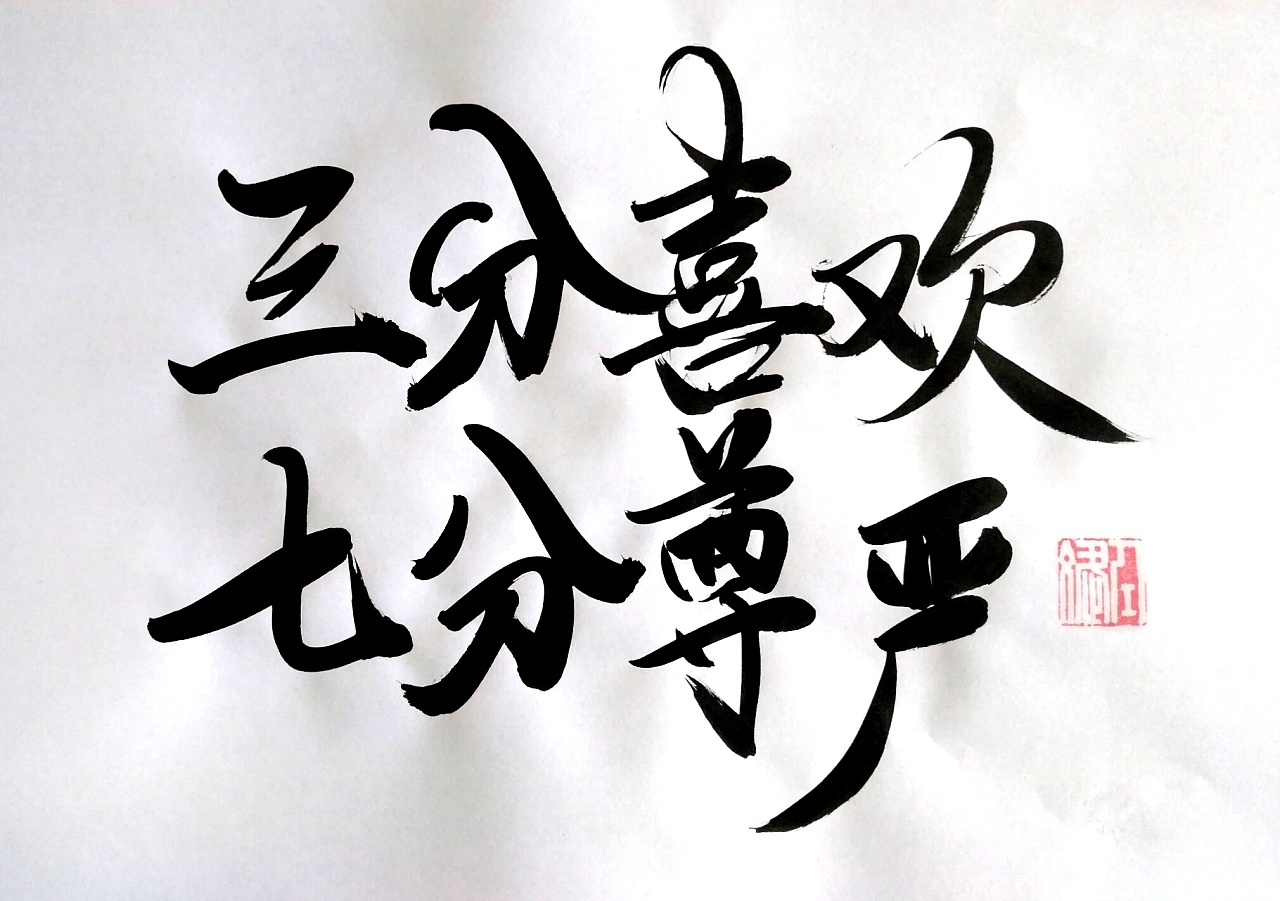 三分喜欢
七分尊严